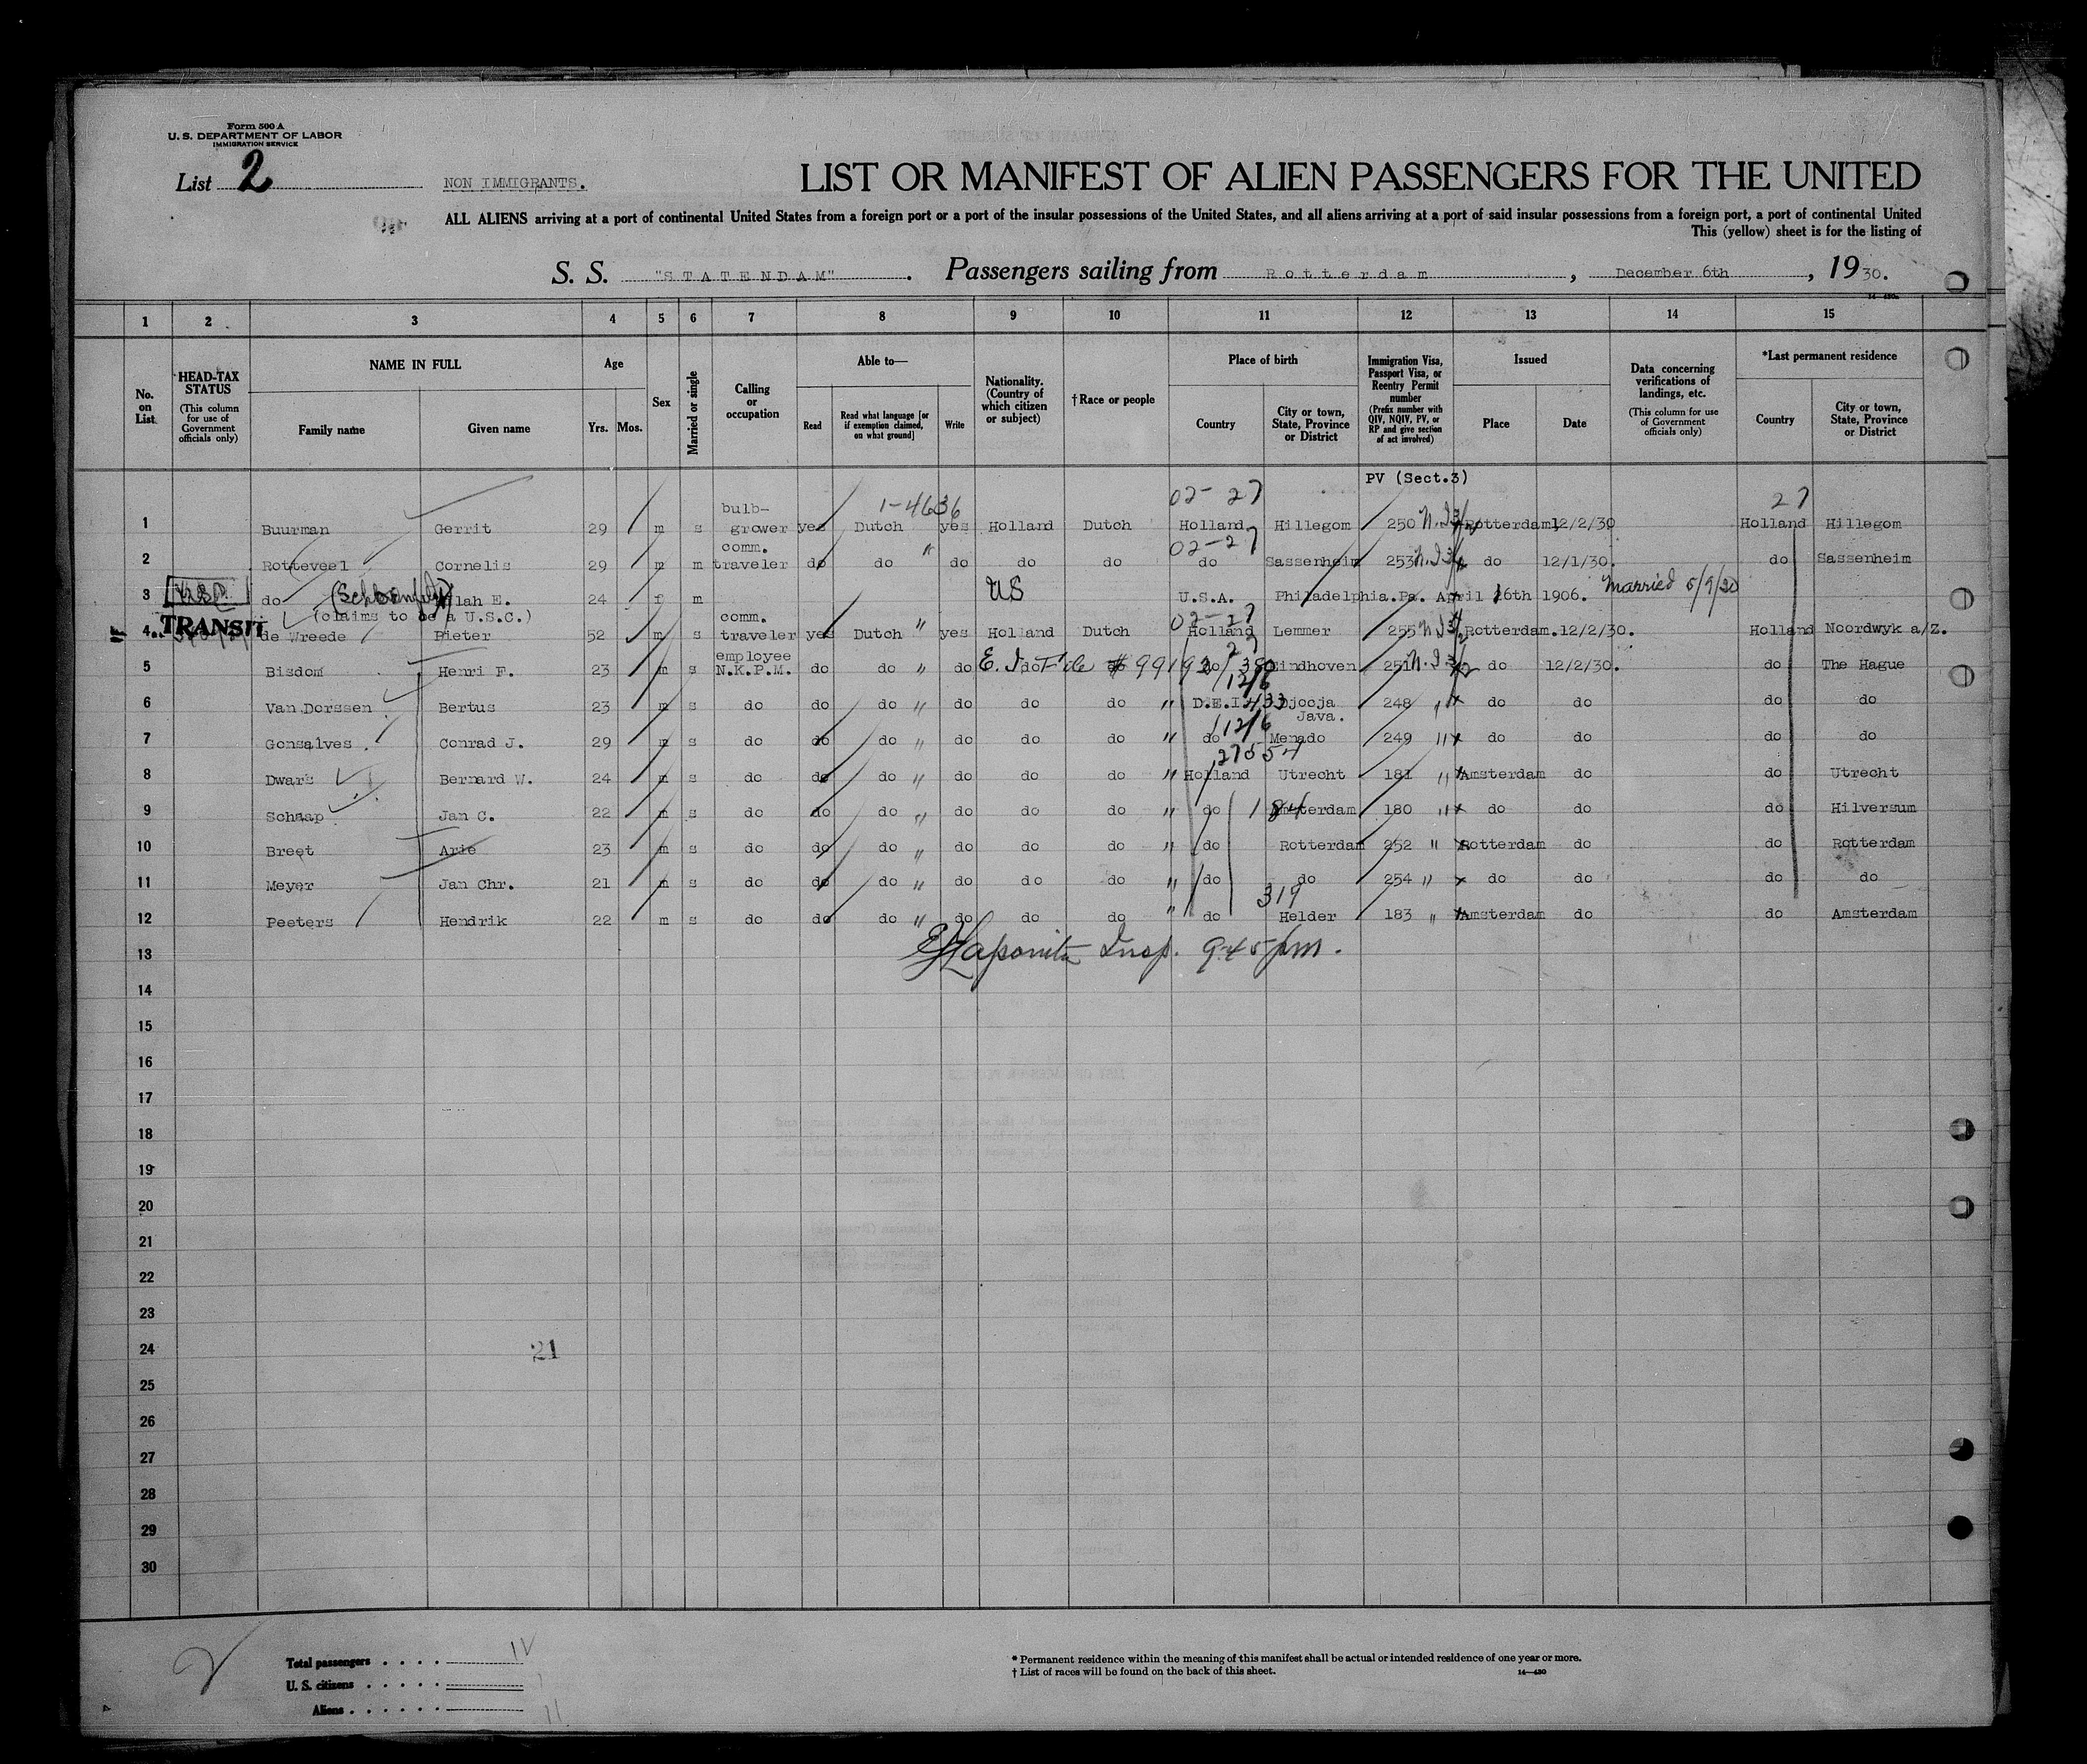 Form 500 A
U. S. DEPARTMENT OF LABOR
IMMIGRATION SERVICE
List 2
NON IMMIGRANTS.
LIST OR MANIFEST OF ALIEN PASSENGERS FOR THE UNITED
ALL ALIENS arriving at a port of continental United States from a foreign port or a port of the insular possessions of the United States, and all aliens arriving at a port of said insular possessions from a foreign port, a port of continental United
This (yellow) sheet is for the listing of
S. S. "STATENDAM". Passengers sailing from Rotterdam, December 6th, 1930.
1 2 3 4 5 6 7 8 9 10 11 12 13 14 15
No. on List
HEAD-TAX STATUS (This column for use of Government officials only)
NAME IN FULL Family name Given name
Age Yrs. Mos.
Sex
Married or single
Calling or occupation
Able to— Read Read what language [or if exemption claimed, on what ground] Write
Nationality. (Country of which citizen or subject)
† Race or people
Place of birth Country City or town, State, Province or District
Immigration Visa, Passport Visa, or Reentry Permit number (Prefix number with QIV, NQIV, PV, or RP and give section of act involved)
Issued Place Date
Data concerning verifications of landings, etc. (This column for use of Government officials only)
*Last permanent residence Country City or town, State, Province or District
PV (Sect.3)
02-27 27
1-4636
1 Buurman Gerrit 29 m s bulb-grower yes Dutch yes Holland Dutch Holland Hillegom 250 Rotterdam 12/2/30 Holland Hillegom
02-27
2 Rotteveel Cornelis 29 m m comm. traveler do do " do do do do Sassenheim 253 do 12/1/30. do Sassenheim
3 do 24 f m US U.S.A. Philadelphia.Pa. April 26th 1906. Married 5/9/30
(claims to be a U.S.C.)
02-27
4 TRANSIT de Wreede Pieter 52 m s comm. traveler yes Dutch " yes Holland Dutch Holland Lemmer 255 Rotterdam. 12/2/30. Holland Noordwyk a/Z.
5 Bisdom Henri F. 23 m s employee N.K.P.M. do do " do do do Eindhoven 251 do 12/2/30. do The Hague
6 Van Dorssen Bertus 23 m s do do do " do do do " D.E.I. Djocja Java. 248 " do do do do
7 Gonsalves Conrad J. 29 m s do do do " do do do " do Menado 249 " do do do do
8 Dwars Bernard W. 24 m s do do do " do do do " Holland Utrecht 181 " Amsterdam do do Utrecht
9 Schaap Jan C. 22 m s do do do " do do do " do Amsterdam 180 " do do do Hilversum
10 Breet Arie 23 m s do do do " do do do " do Rotterdam 252 " Rotterdam do do Rotterdam
11 Meyer Jan Chr. 21 m s do do do " do do do " do do 254 " do do do do
319
12 Peeters Hendrik 22 m s do do do " do do do " do Helder 183 " Amsterdam do do Amsterdam
13 Insp. 945 pm.
14
15
16
17
18
19
20
21
22
23
24 21
25
26
27
28
29
30
Total passengers
U. S. citizens
Aliens 11
* Permanent residence within the meaning of this manifest shall be actual or intended residence of one year or more.
† List of races will be found on the back of this sheet.
14—430